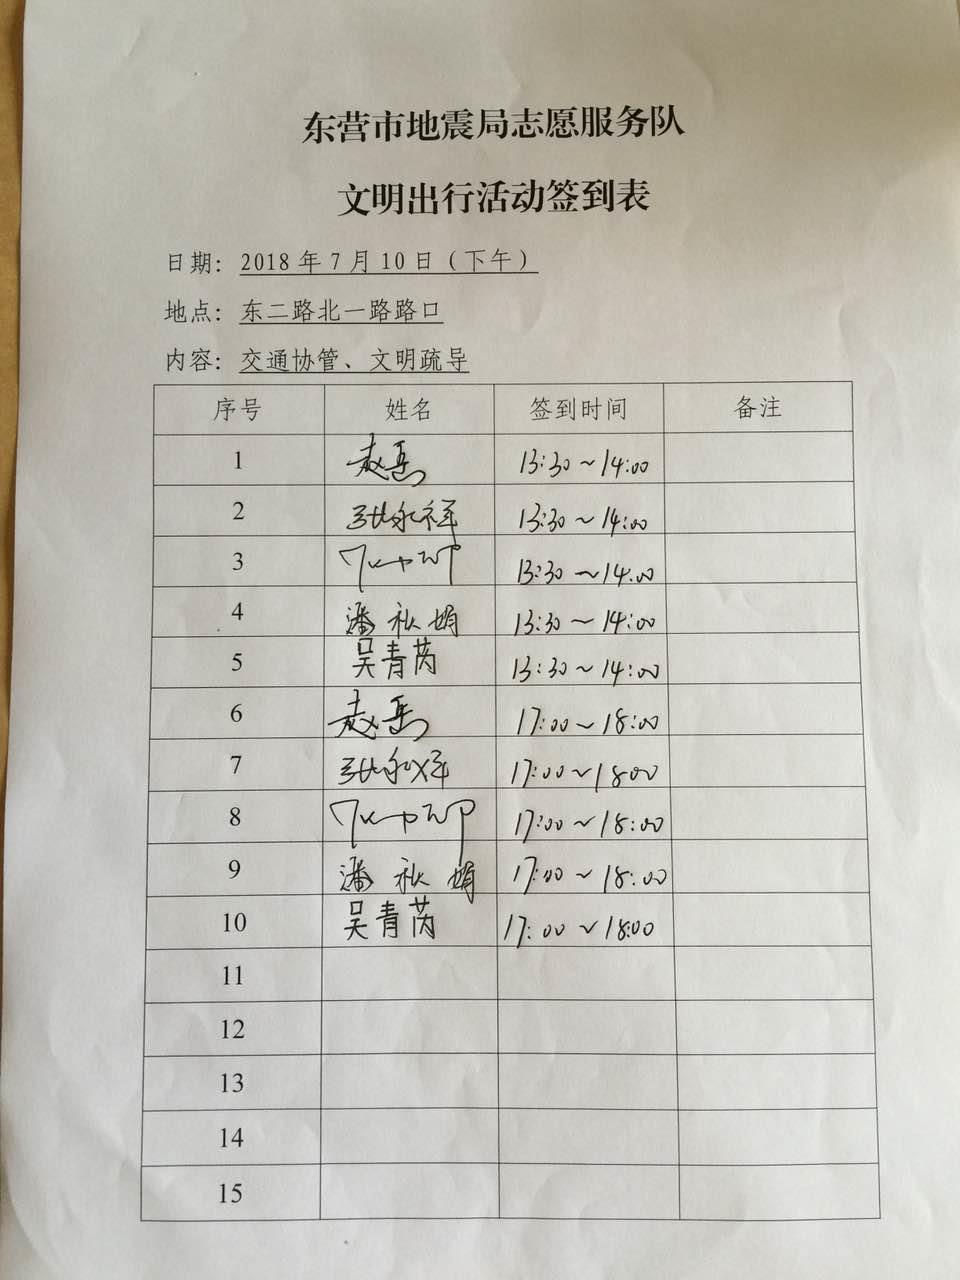 东营市地震局志愿服务队
文明出行活动签到表
日期: 2018年7月10日(下午)
地点: 东二路北一路路口
内容: 交通协管、文明疏导
序号 姓名 签到时间 备注
1 赵 13:30~14:00
2 张永祥 13:30~14:00
3 13:30~14:00
4 潘秋娟 13:30~14:00
5 吴青芮 13:30~14:00
6 赵 17:00~18:00
7 张永祥 17:00~18:00
8 17:00~18:00
9 潘秋娟 17:00~18:00
10 吴青芮 17:00~18:00
11
12
13
14
15